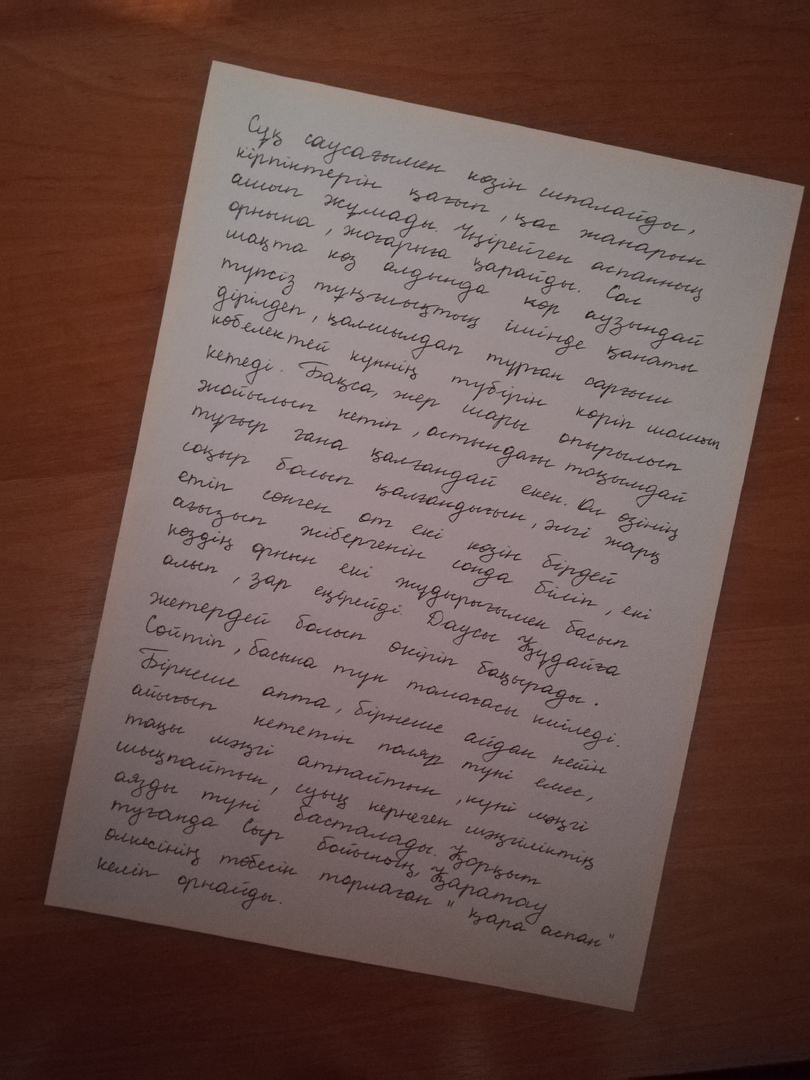 Сұқ саусағымен көзін сипалайды,
кірпіктерін қағып, қас жанарын
ашып жұмады. Үңірейген аспанның
орнына, жоғарыға қарайды. Сол
шақта көз алдында көр аузындай
түпсіз тұңғиықтың ішінде қанаты
дірілдеп, қалшылдап тұрған сарғыш
көбелектей күннің түбірін көріп шошып
кетеді. Бақса, жер шары опырылып
жойылып кетіп, астындағы тоқымдай
тұғыр ғана қалғандай екен. Ол өзінің
соқыр болып қалғандығын, әлгі жарқ
етіп сөнген от екі көзін бірдей
ағызып жібергенін сонда біліп, екі
көздің орнын екі жұдырығымен басып
алып, зар еңірейді. Даусы Құдайға
жетердей болып өкіріп бақырады.
Сөйтіп, басына түн томағасы киіледі.
Бірнеше апта, бірнеше айдан кейін
айығып кететін поляр түні емес,
таңы мәңгі атпайтын, күні мәңгі
шықпайтын, сұық кернеген мәңгіліктің
аязды түні басталады. Қорқыт
туғанда Сыр бойының, Қаратау
өлкесінің төбесін торлаған "қара аспан"
келіп орнайды.